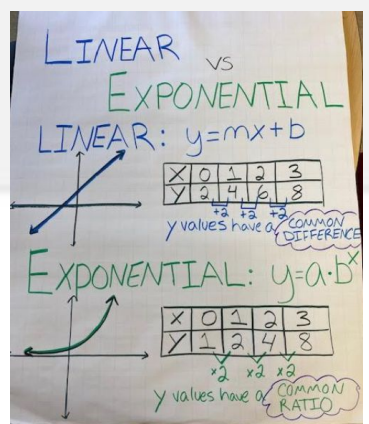 LINEAR
vs
EXPONENTIAL
LINEAR: y=mx+b
X 0 1 2 3
Y 2 4 6 8
+2 +2 +2
y values have a COMMON DIFFERENCE
EXPONENTIAL: y=a·bˣ
X 0 1 2 3
Y 1 2 4 8
×2 ×2 ×2
y values have a COMMON RATIO